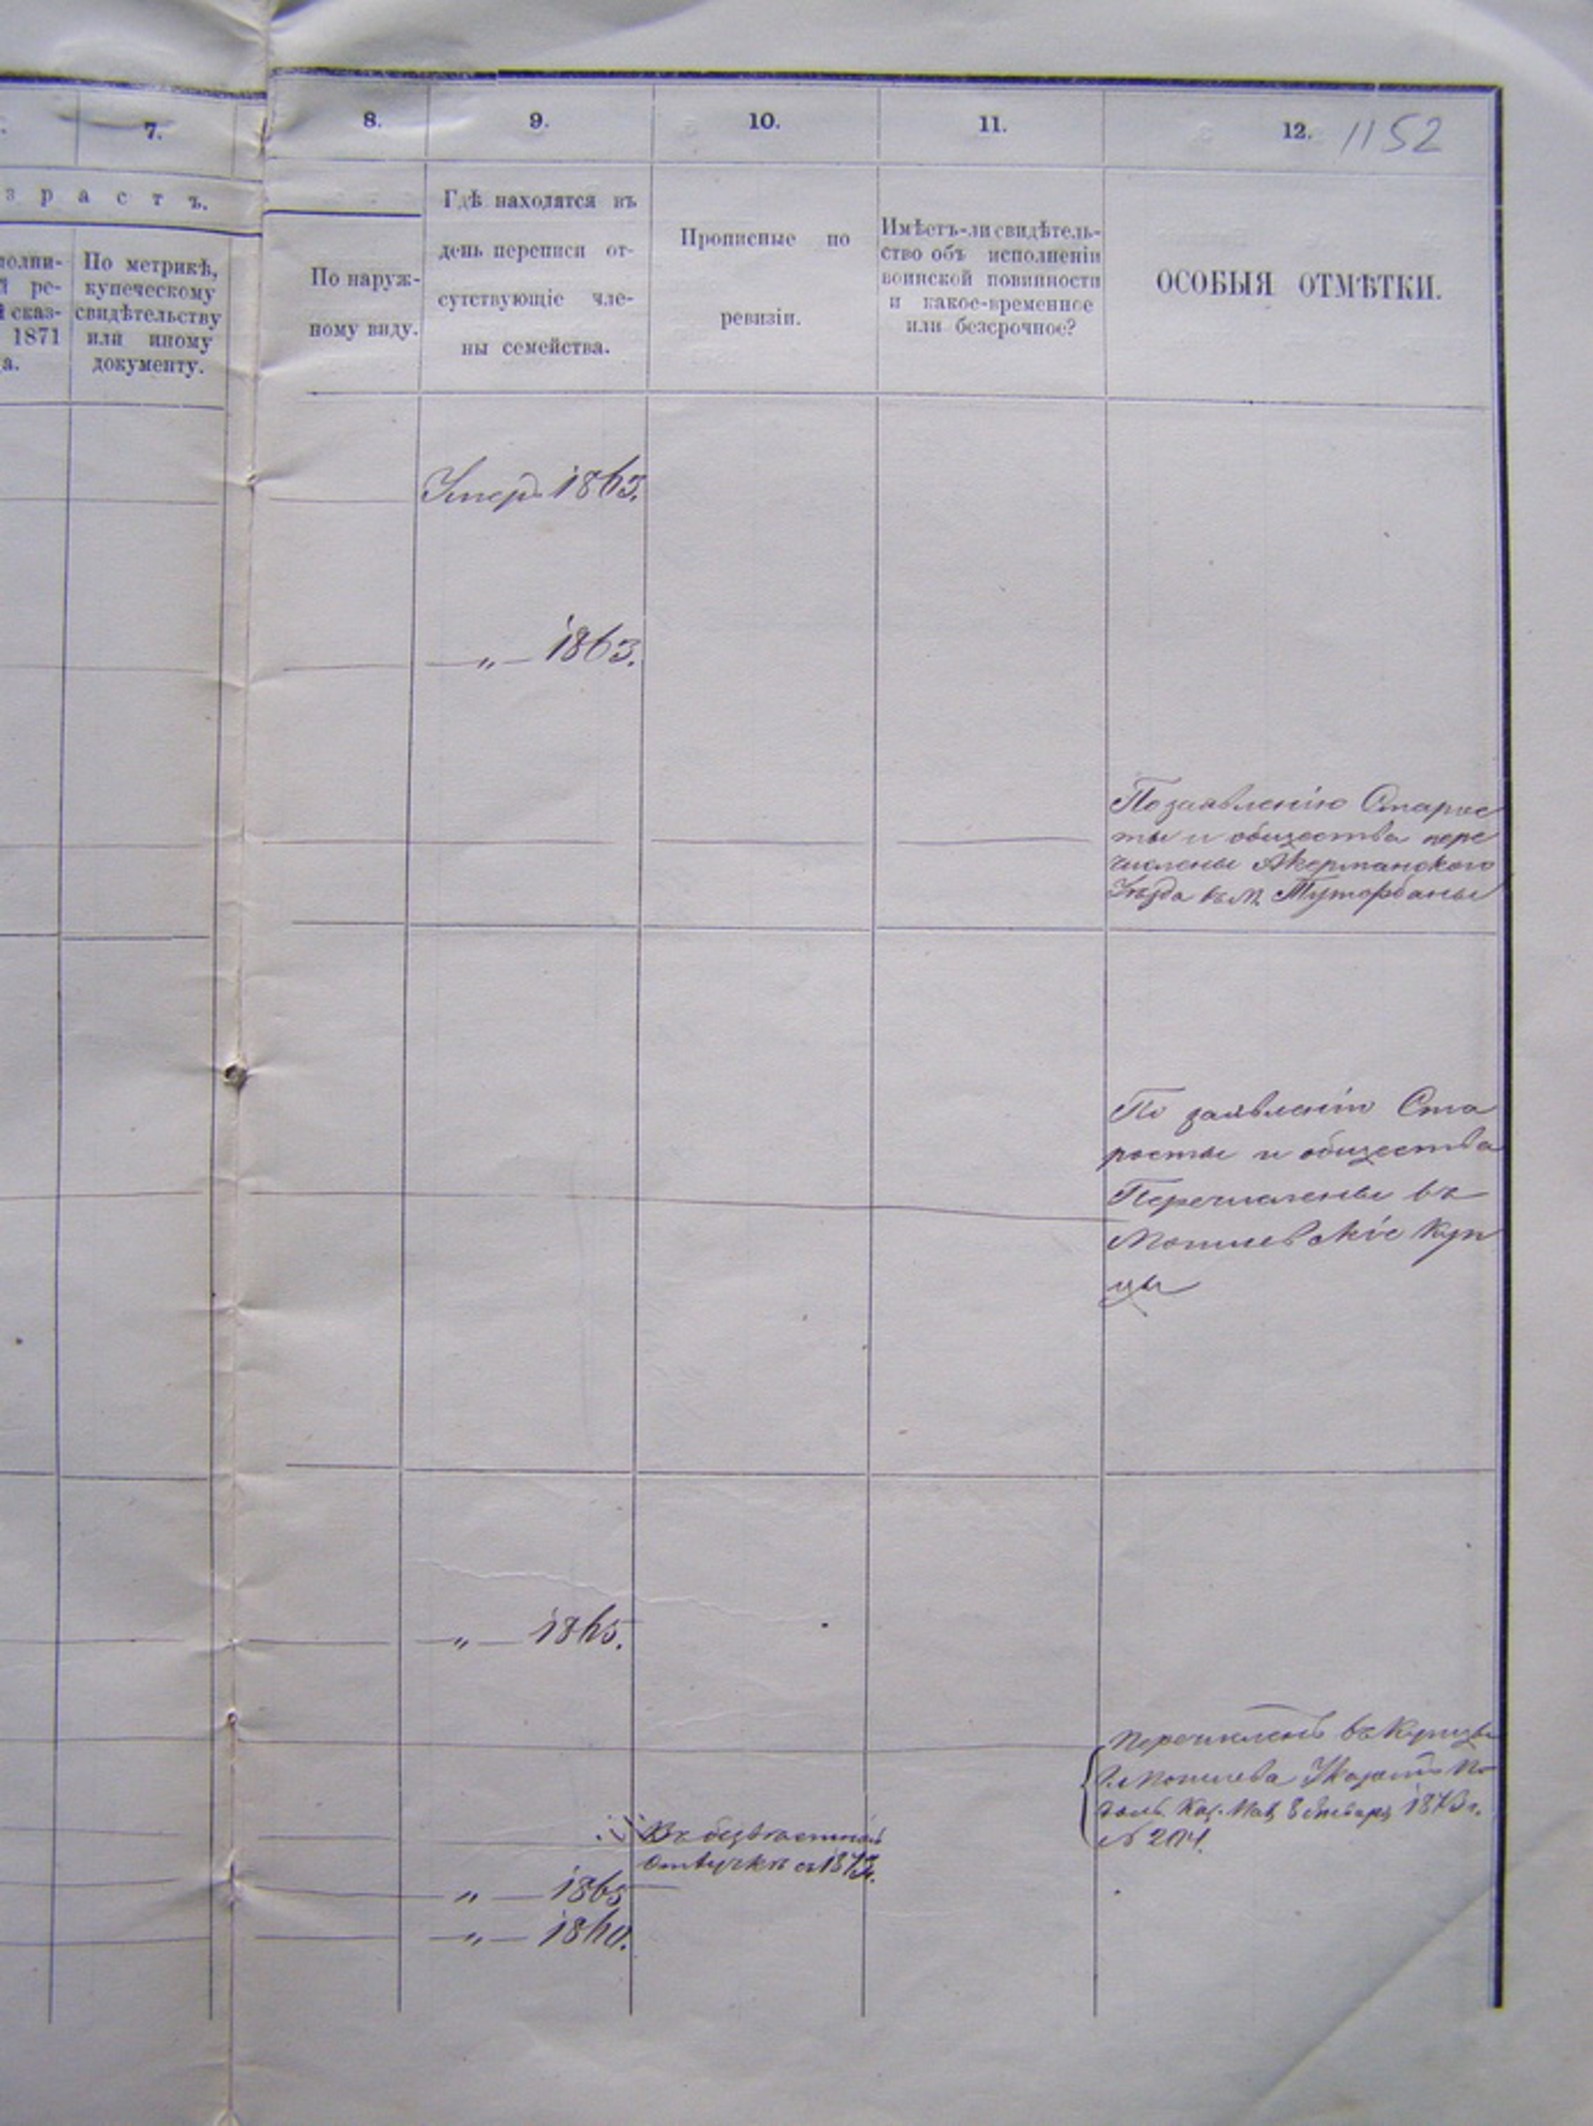 7.
8.
9.
10.
11.
12. 1152
з р а с т ъ.
По метрикѣ,
купеческому
свидѣтельству
или иному
документу.
полни-
й ре-
сказ-
1871
а.
По наруж-
ному виду.
Гдѣ находятся въ
день переписи от-
сутствующіе чле-
ны семейства.
Прописные по
ревизіи.
Имѣетъ-ли свидѣтель-
ство объ исполненіи
воинской повинности
и какое-временное
или безсрочное?
ОСОБЫЯ ОТМѢТКИ.
Умеръ 1863.
—„— 1863.
По заявленію Старос
ты и общества пере
числены Акерманского
Уѣзда въ м.
По заявленію Ста
росты и общества
Перечислены въ
Могилевскіе Куп
цы
—„— 1865.
Перечисленъ въ Купцы
г. Могилева Указомъ По
дол. Каз. Пал. 8 Января 1873 г.
№ 204.
Въ безвѣстной
отлучкѣ съ 1873 г.
„ — 1865
—„— 1860.